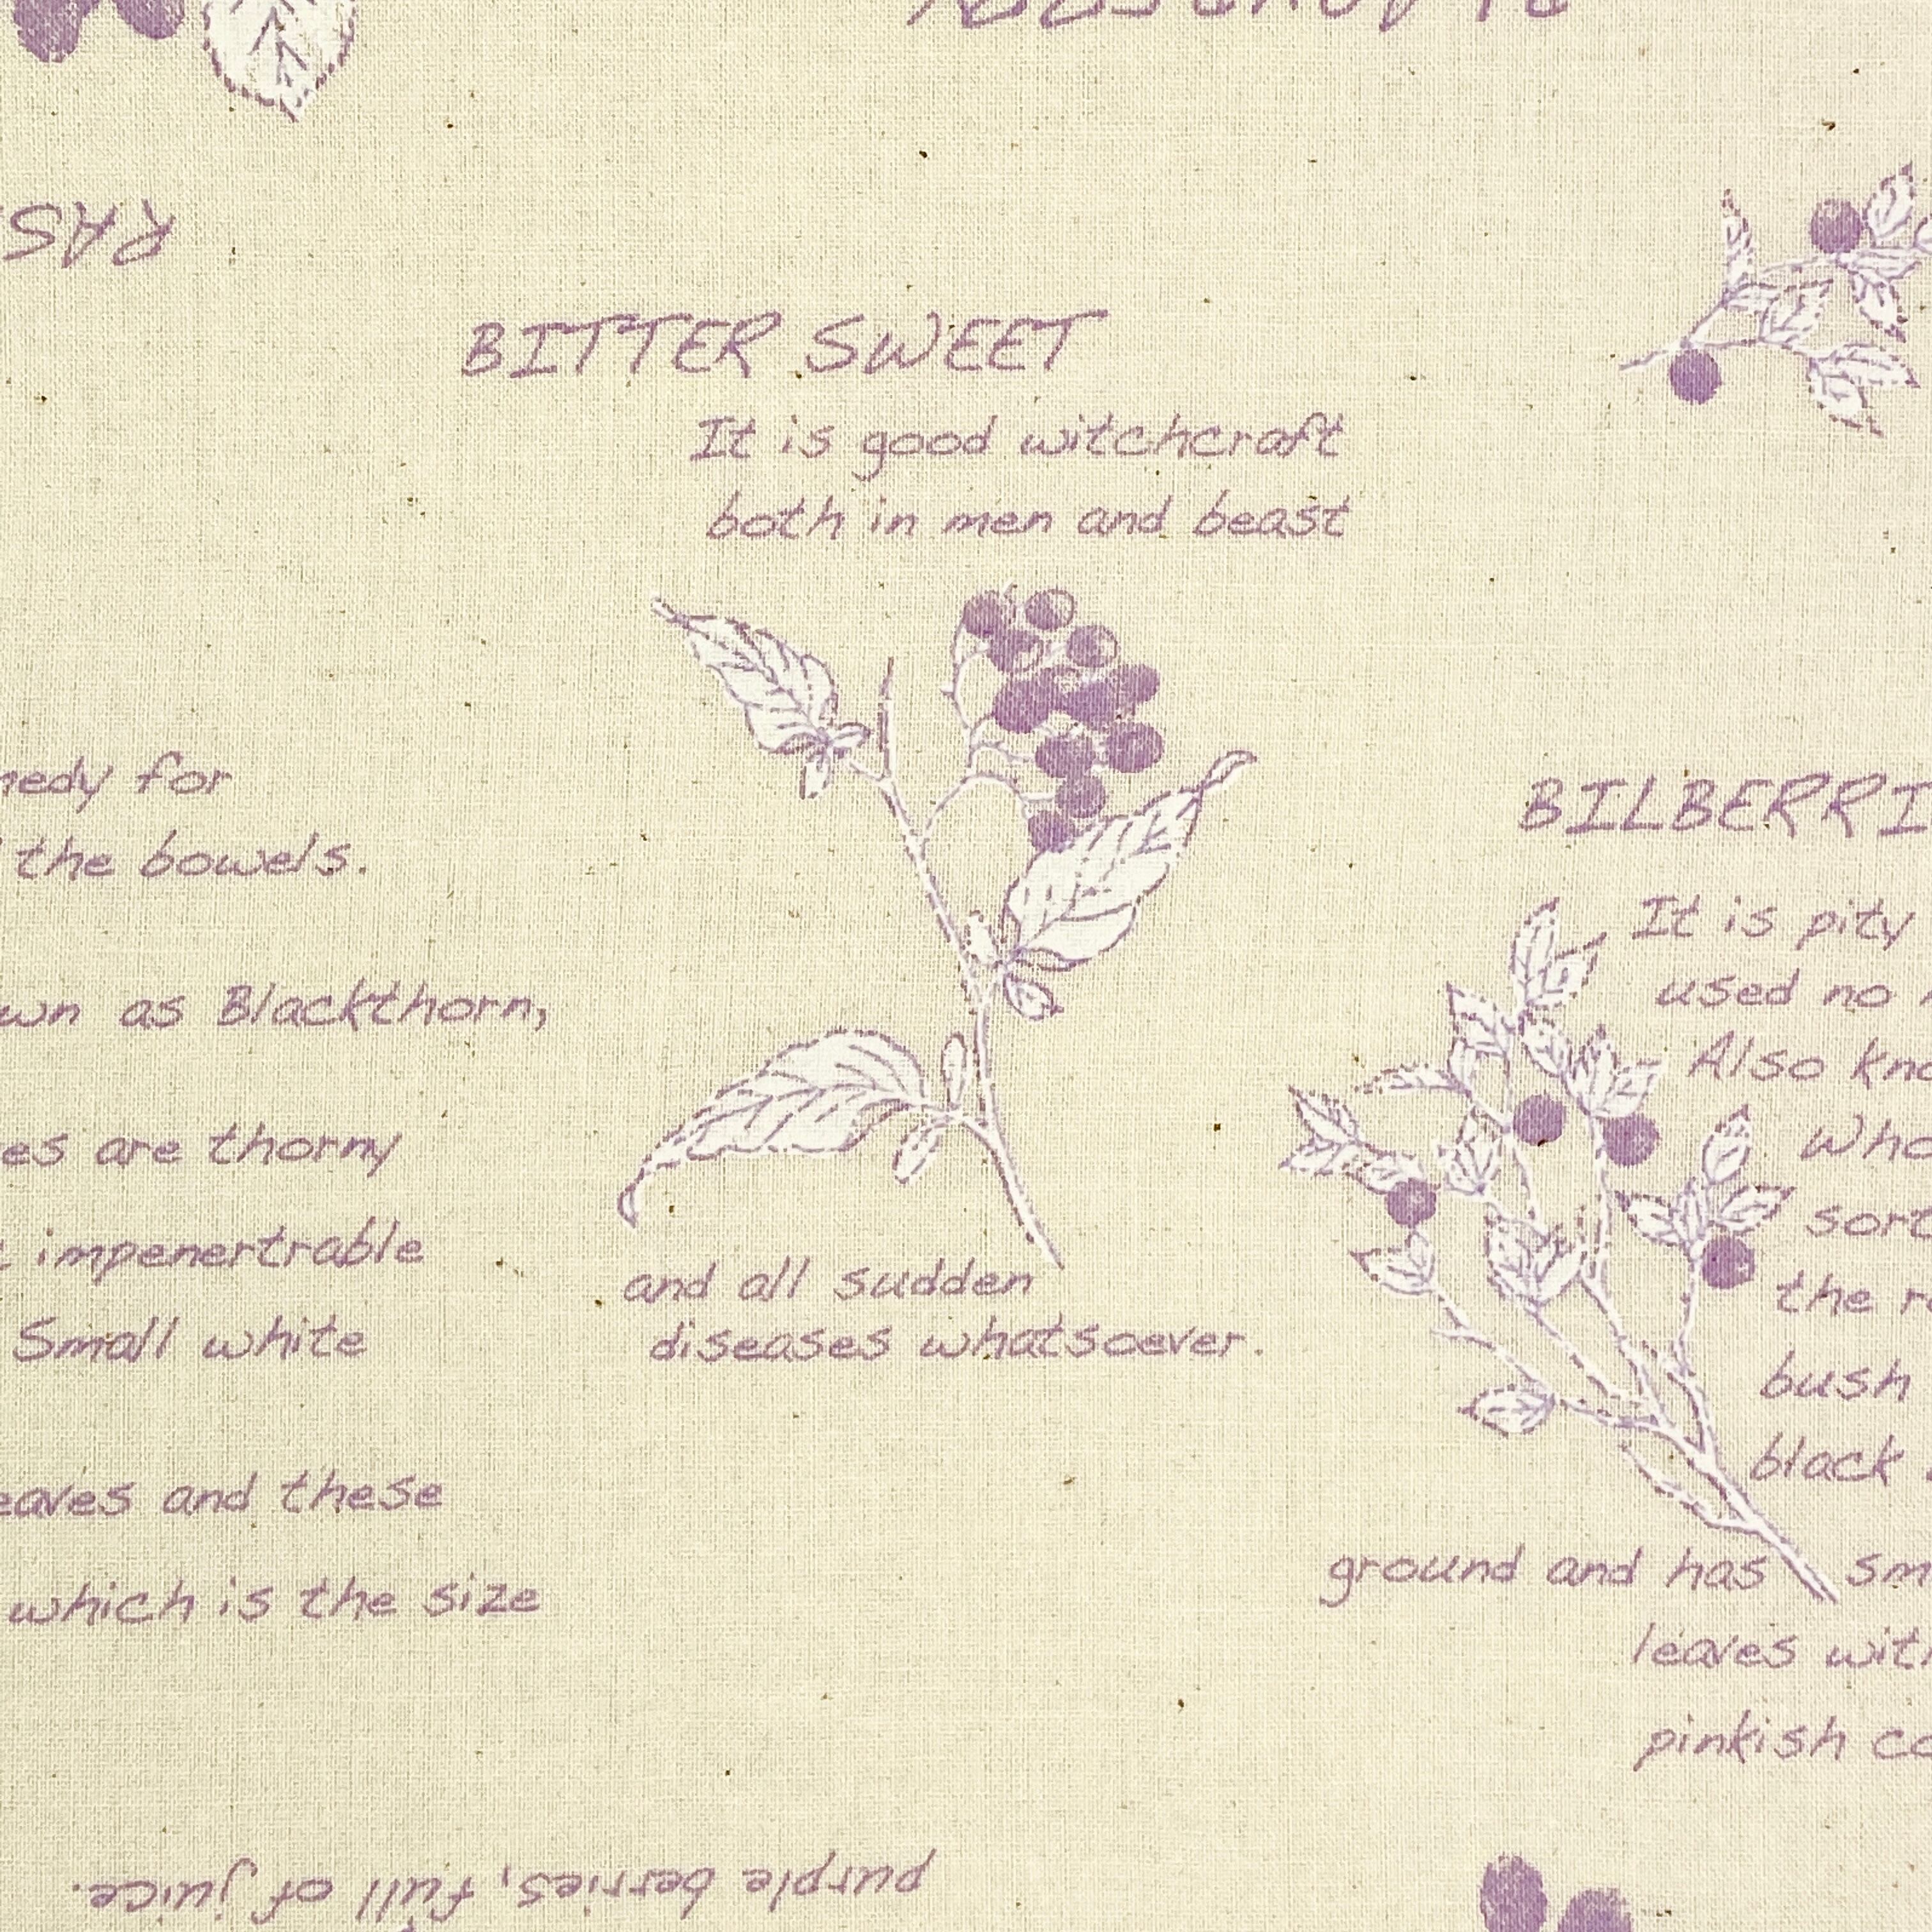 RAS
BITTER SWEET
It is good witchcraft
both in men and beast
and all sudden
diseases whatsoever.
for
the bowels.
as Blackthorn,
are thorny
impenertrable
Small white
and these
which is the size
BILBERRI
It is pity
used no
Also
the
bush
black
ground and has
leaves
pinkish
purple berries, full of juice.